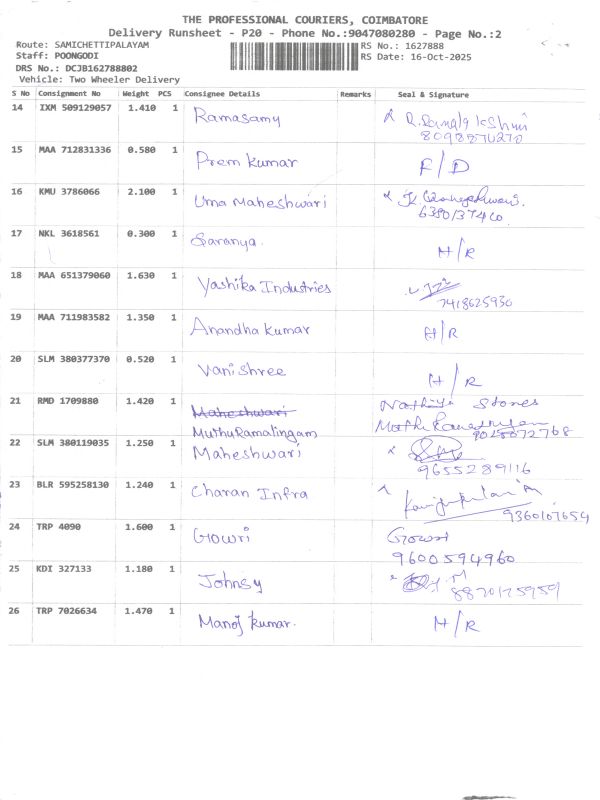 THE PROFESSIONAL COURIERS, COIMBATORE
Delivery Runsheet - P20 - Phone No.:9047080280 - Page No.:2
Route: SAMICHETTIPALAYAM RS No.: 1627888
Staff: POONGODI RS Date: 16-Oct-2025
DRS No.: DCJB162788802
Vehicle: Two Wheeler Delivery
S No Consignment No Weight PCS Consignee Details Remarks Seal & Signature
14 IXM 509129057 1.410 1 Ramasamy
15 MAA 712831336 0.580 1 Prem kumar F/D
16 KMU 3786066 2.100 1 Uma Maheshwari
17 NKL 3618561 0.300 1 Saranya. H/R
18 MAA 651379060 1.630 1 Yashika Industries
7418625930
19 MAA 711983582 1.350 1 Anandha kumar H/R
20 SLM 380377370 0.520 1 Vanishree H/R
21 RMD 1709880 1.420 1 Maheshwari Stores
MuthuRamalingam
22 SLM 380119035 1.250 1 Maheshwari
9655289116
23 BLR 595258130 1.240 1 Charan Infra
9360107654
24 TRP 4090 1.600 1 Gowri Gowri
9600594960
25 KDI 327133 1.180 1 Johnsy
26 TRP 7026634 1.470 1 Manoj kumar. H/R